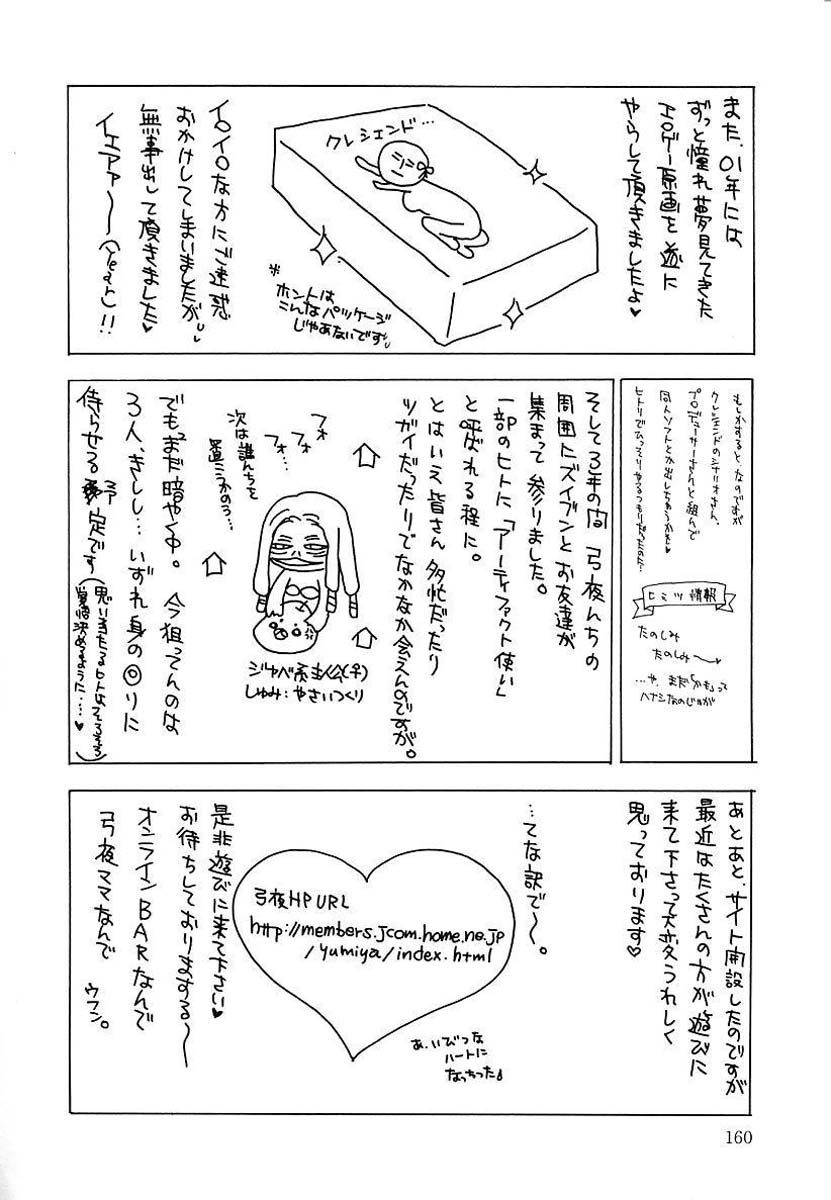 また、01年には
ずっと憧れ夢見てきた
エロゲー原画を遂に
やらして頂きましたよ♥
クレシェンド…
※
ホントは
こんなパッケージ
じゃあないです
イロイロな方にご迷惑
おかけしてしまいましたが、
無事出して頂きました♥
イェアァ〜〜(Yeah)!!
もしかすると、なのですが
クレシェンドのシナリオさん、
プロデューサーさんと組んで
同人ソフトとか出しちゃうかも♥
ヒトリでひっそりやるつもりだったのに…
ヒミツ情報
たのしみ
たのしみ〜
…や、まだ「かも」って
ハナシなのじゃが
そして3年の間 弓夜んちの
周囲にズイブンとお友達が
集まって参りました。
一部のヒトに「アーティファクト使い」
と呼ばれる程に。
とはいえ皆さん多忙だったり
ツガイだったりでなかなか会えんのですが。
フォ
フォ
フォ…
次は誰んちを
置こうかのぅ…
ジャベ系主人公(♀)
しゅみ:やさいつくり
でもっまだ暗や中。今狙ってんのは
3人、きしし…いずれ身の回りに
侍らせる予定です
(思い当たるヒトはそろそろ
覚悟決めるように…♥)
あとあと、サイト開設したのですが
最近はたくさんの方が遊びに
来て下さって大変うれしく
思っております♥
…てな訳で〜。
弓夜HP URL
http://members.jcom.home.ne.jp
/yumiya/index.html
あ、いびつな
ハートに
なっちった
是非遊びに来て下さい♥
お待ちしておりまする〜
オンラインBARなんで
弓夜ママなんで
ウフン。
160